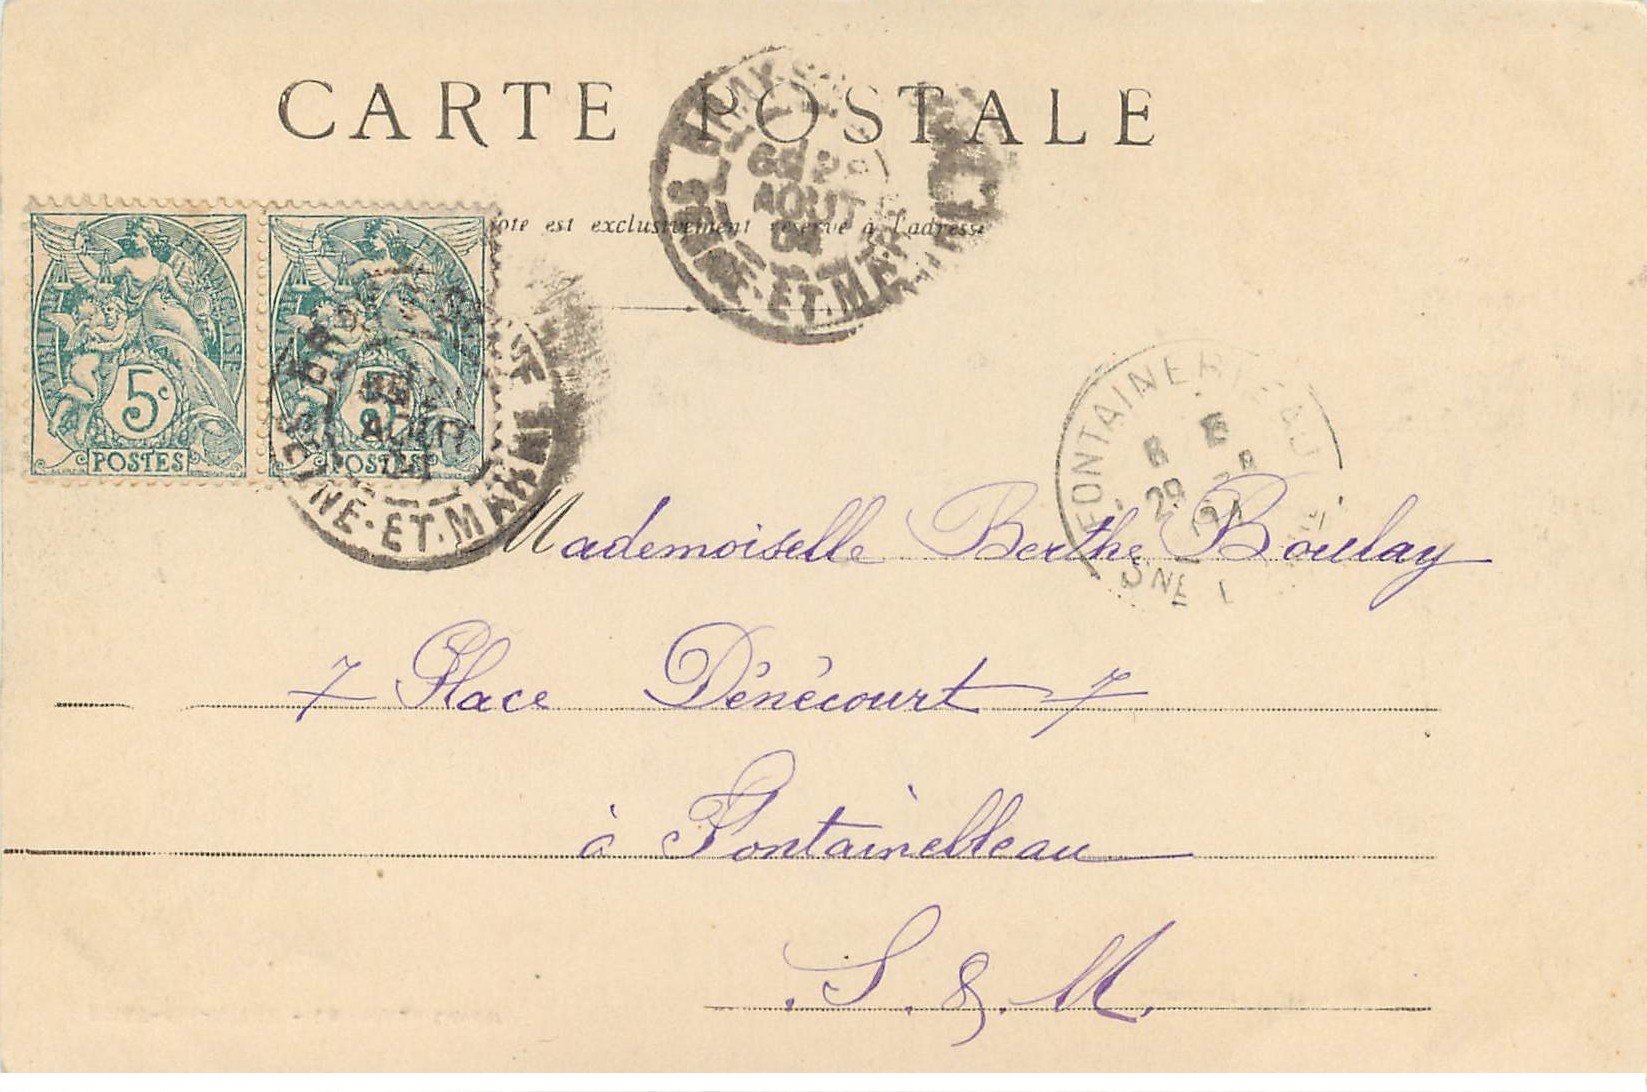 CARTE POSTALE
côté est exclusivement réservé à l'adresse
RÉPUBLIQUE FRANÇAISE
5c
POSTES
5c
POSTES
AOUT
04
SEINE-ET-MARNE
AOUT
SEINE-ET-MARNE
FONTAINEBLEAU
29
Mademoiselle Berthe Boulay
7 Place Dénécourt 7
à Fontainelleau
S. & M.